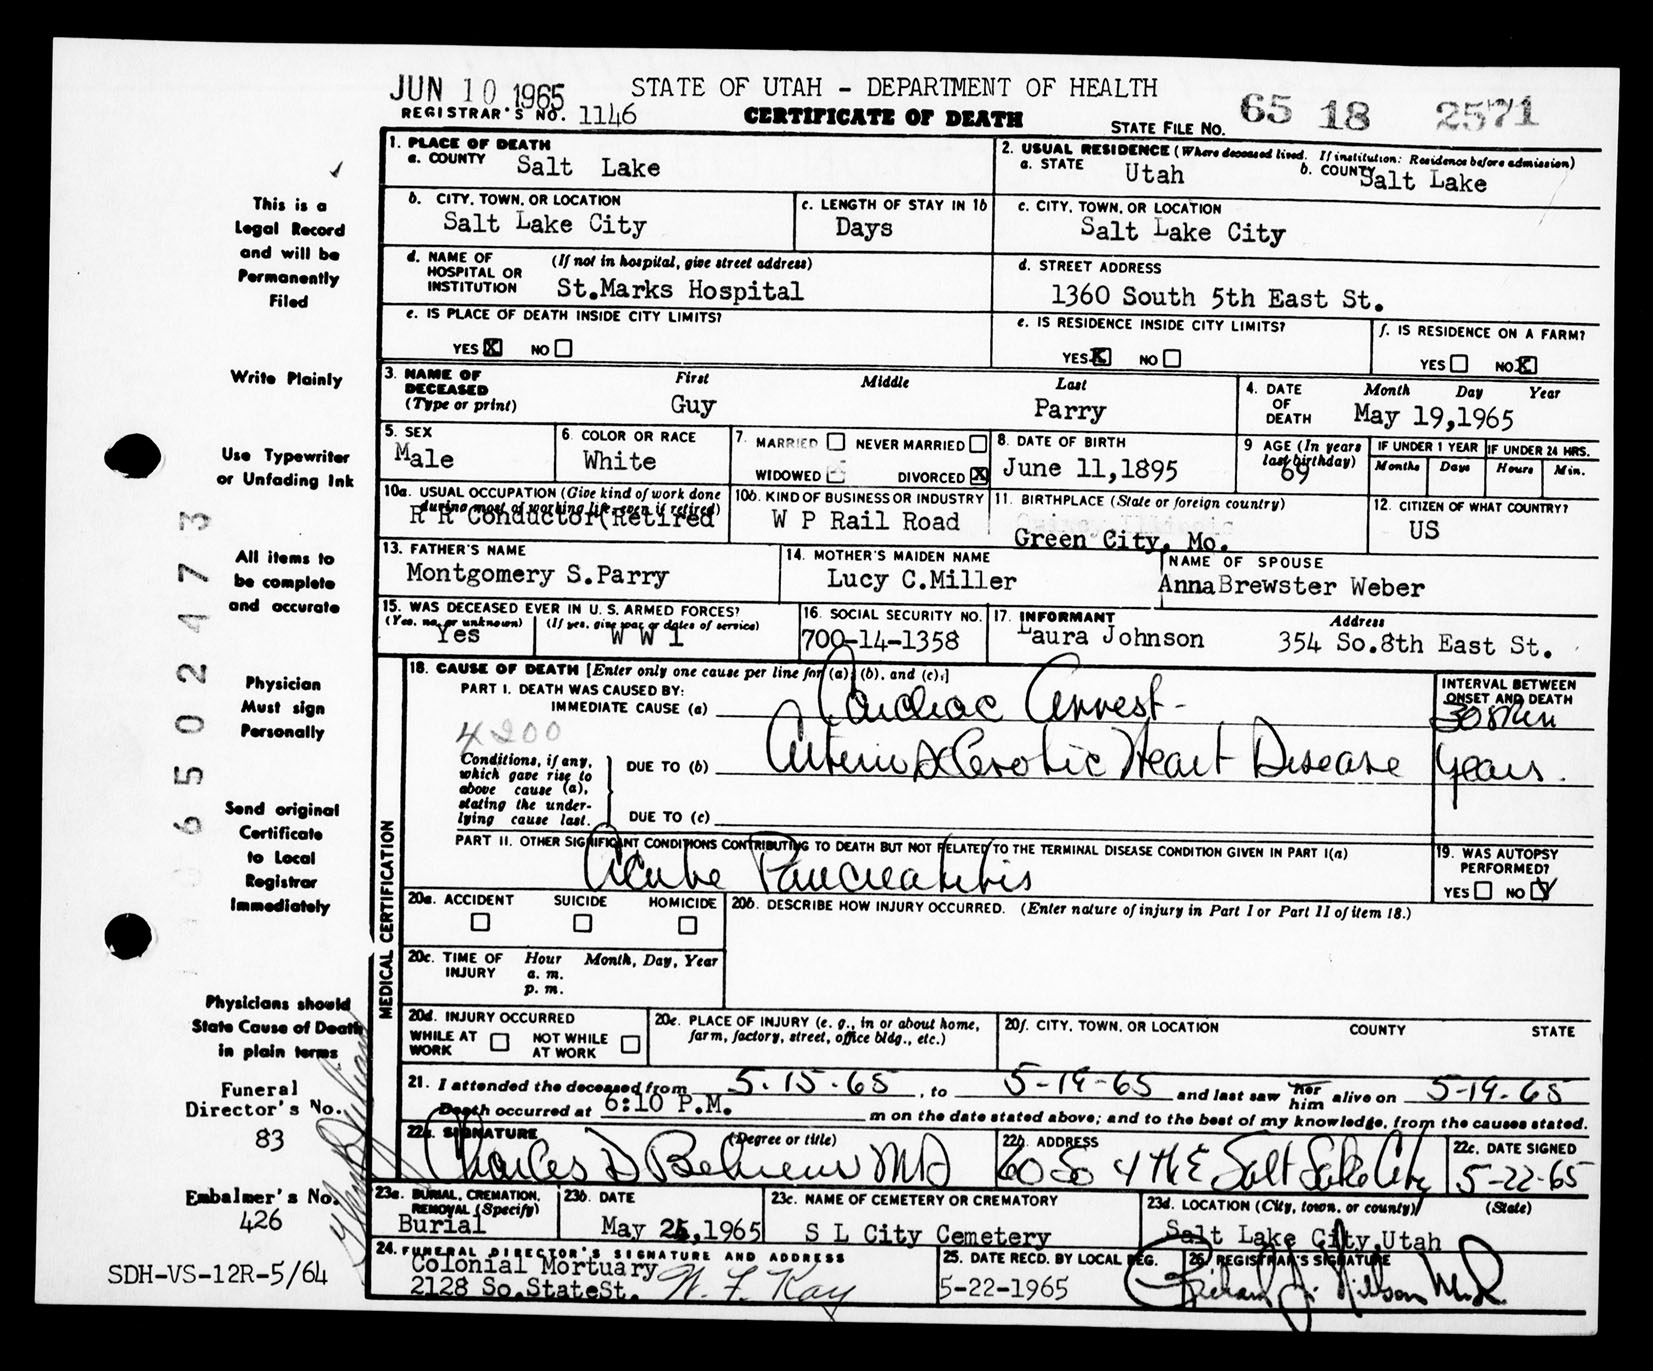 JUN 10 1965
STATE OF UTAH - DEPARTMENT OF HEALTH
REGISTRAR'S NO. 1146
CERTIFICATE OF DEATH
STATE FILE NO. 65 18 2571
1. PLACE OF DEATH
a. COUNTY Salt Lake
2. USUAL RESIDENCE (Where deceased lived. If institution: Residence before admission)
a. STATE Utah b. COUNTY Salt Lake
b. CITY, TOWN, OR LOCATION Salt Lake City
c. LENGTH OF STAY IN 1b Days
c. CITY, TOWN, OR LOCATION Salt Lake City
d. NAME OF HOSPITAL OR INSTITUTION (If not in hospital, give street address) St.Marks Hospital
d. STREET ADDRESS 1360 South 5th East St.
e. IS PLACE OF DEATH INSIDE CITY LIMITS?
YES X NO
e. IS RESIDENCE INSIDE CITY LIMITS?
YES X NO
f. IS RESIDENCE ON A FARM?
YES NO X
3. NAME OF DECEASED (Type or print)
First Middle Last
Guy Parry
4. DATE OF DEATH Month Day Year
May 19,1965
5. SEX Male
6. COLOR OR RACE White
7. MARRIED NEVER MARRIED
WIDOWED DIVORCED X
8. DATE OF BIRTH June 11,1895
9 AGE (In years last birthday) 69
IF UNDER 1 YEAR Months Days
IF UNDER 24 HRS. Hours Min.
10a. USUAL OCCUPATION (Give kind of work done during most of working life, even if retired)
R R Conductor(Retired
10b. KIND OF BUSINESS OR INDUSTRY W P Rail Road
11. BIRTHPLACE (State or foreign country)
Green City, Mo.
12. CITIZEN OF WHAT COUNTRY? US
13. FATHER'S NAME Montgomery S.Parry
14. MOTHER'S MAIDEN NAME Lucy C.Miller
NAME OF SPOUSE AnnaBrewster Weber
15. WAS DECEASED EVER IN U.S. ARMED FORCES?
(Yes, no, or unknown) Yes (If yes, give war or dates of service) W W 1
16. SOCIAL SECURITY NO. 700-14-1358
17. INFORMANT Laura Johnson
Address 354 So.8th East St.
MEDICAL CERTIFICATION
18. CAUSE OF DEATH [Enter only one cause per line for (a), (b), and (c).]
PART I. DEATH WAS CAUSED BY:
IMMEDIATE CAUSE (a) Cardiac Arrest -
INTERVAL BETWEEN ONSET AND DEATH
30 Min
4200
Conditions, if any, which gave rise to above cause (a), stating the underlying cause last.
DUE TO (b) Arterio Sclerotic Heart Disease
years.
DUE TO (c)
PART II. OTHER SIGNIFICANT CONDITIONS CONTRIBUTING TO DEATH BUT NOT RELATED TO THE TERMINAL DISEASE CONDITION GIVEN IN PART I(a)
Acute Pancreatitis
19. WAS AUTOPSY PERFORMED?
YES NO X
20a. ACCIDENT SUICIDE HOMICIDE
20b. DESCRIBE HOW INJURY OCCURRED. (Enter nature of injury in Part I or Part II of item 18.)
20c. TIME OF INJURY Hour Month, Day, Year
a. m.
p. m.
20d. INJURY OCCURRED
WHILE AT WORK NOT WHILE AT WORK
20e. PLACE OF INJURY (e. g., in or about home, farm, factory, street, office bldg., etc.)
20f. CITY, TOWN, OR LOCATION COUNTY STATE
21. I attended the deceased from 5.15.65, to 5-19-65 and last saw her him alive on 5-19-65
Death occurred at 6:10 P.M. m on the date stated above; and to the best of my knowledge, from the causes stated.
22a. SIGNATURE (Degree or title)
Charles D Behrens MD
22b. ADDRESS 60 So 4th E Salt Lake City
22c. DATE SIGNED 5-22-65
23a. BURIAL, CREMATION, REMOVAL (Specify) Burial
23b. DATE May 25,1965
23c. NAME OF CEMETERY OR CREMATORY S L City Cemetery
23d. LOCATION (City, town, or county) (State)
Salt Lake City,Utah
24. FUNERAL DIRECTOR'S SIGNATURE AND ADDRESS
Colonial Mortuary
2128 So.StateSt. W. F. Kay
25. DATE RECD. BY LOCAL REG. 5-22-1965
26. REGISTRAR'S SIGNATURE
This is a
Legal Record
and will be
Permanently
Filed
Write Plainly
Use Typewriter
or Unfading Ink
All items to
be complete
and accurate
Physician
Must sign
Personally
Send original
Certificate
to Local
Registrar
Immediately
Physicians should
State Cause of Death
in plain terms
Funeral
Director's No.
83
Embalmer's No.
426
SDH-VS-12R-5/64
6502473